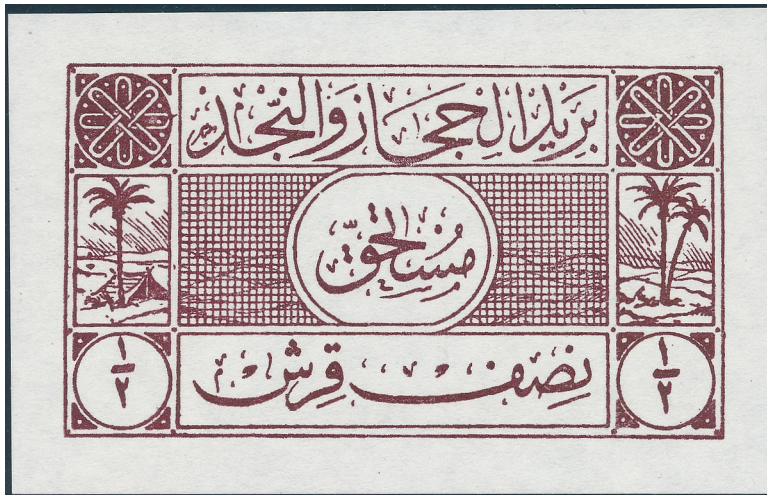 بريد الحجاز والنجد
مستحق
نصف قرش
١/٢
١/٢